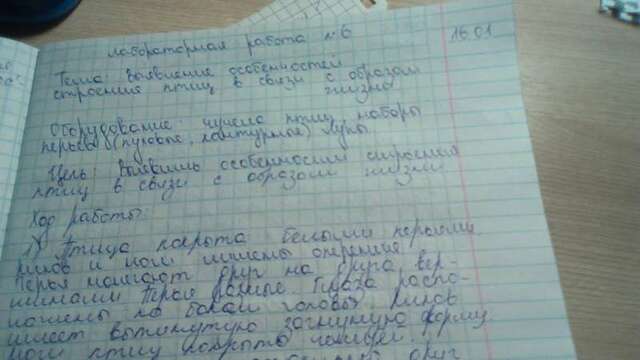 лабораторная работа №6 16.01
Тема: выявление особенностей
строения птиц в связи с образом
жизни
Оборудование: чучела птиц, наборы
перьев (пуховые, контурные) лупы.
Цель: выявить особенности строения
птиц в связи с образом жизни
Ход работы:
1) Птица покрыта белыми перьями
клюв и ноги лишены оперения.
Перья налегают друг на друга вер-
шинами. Перья разные. Глаза распо-
ложены по бокам головы. Клюв
имеет вытянутую загнутую форму
ноги птиц покрыты чешуей.
друг